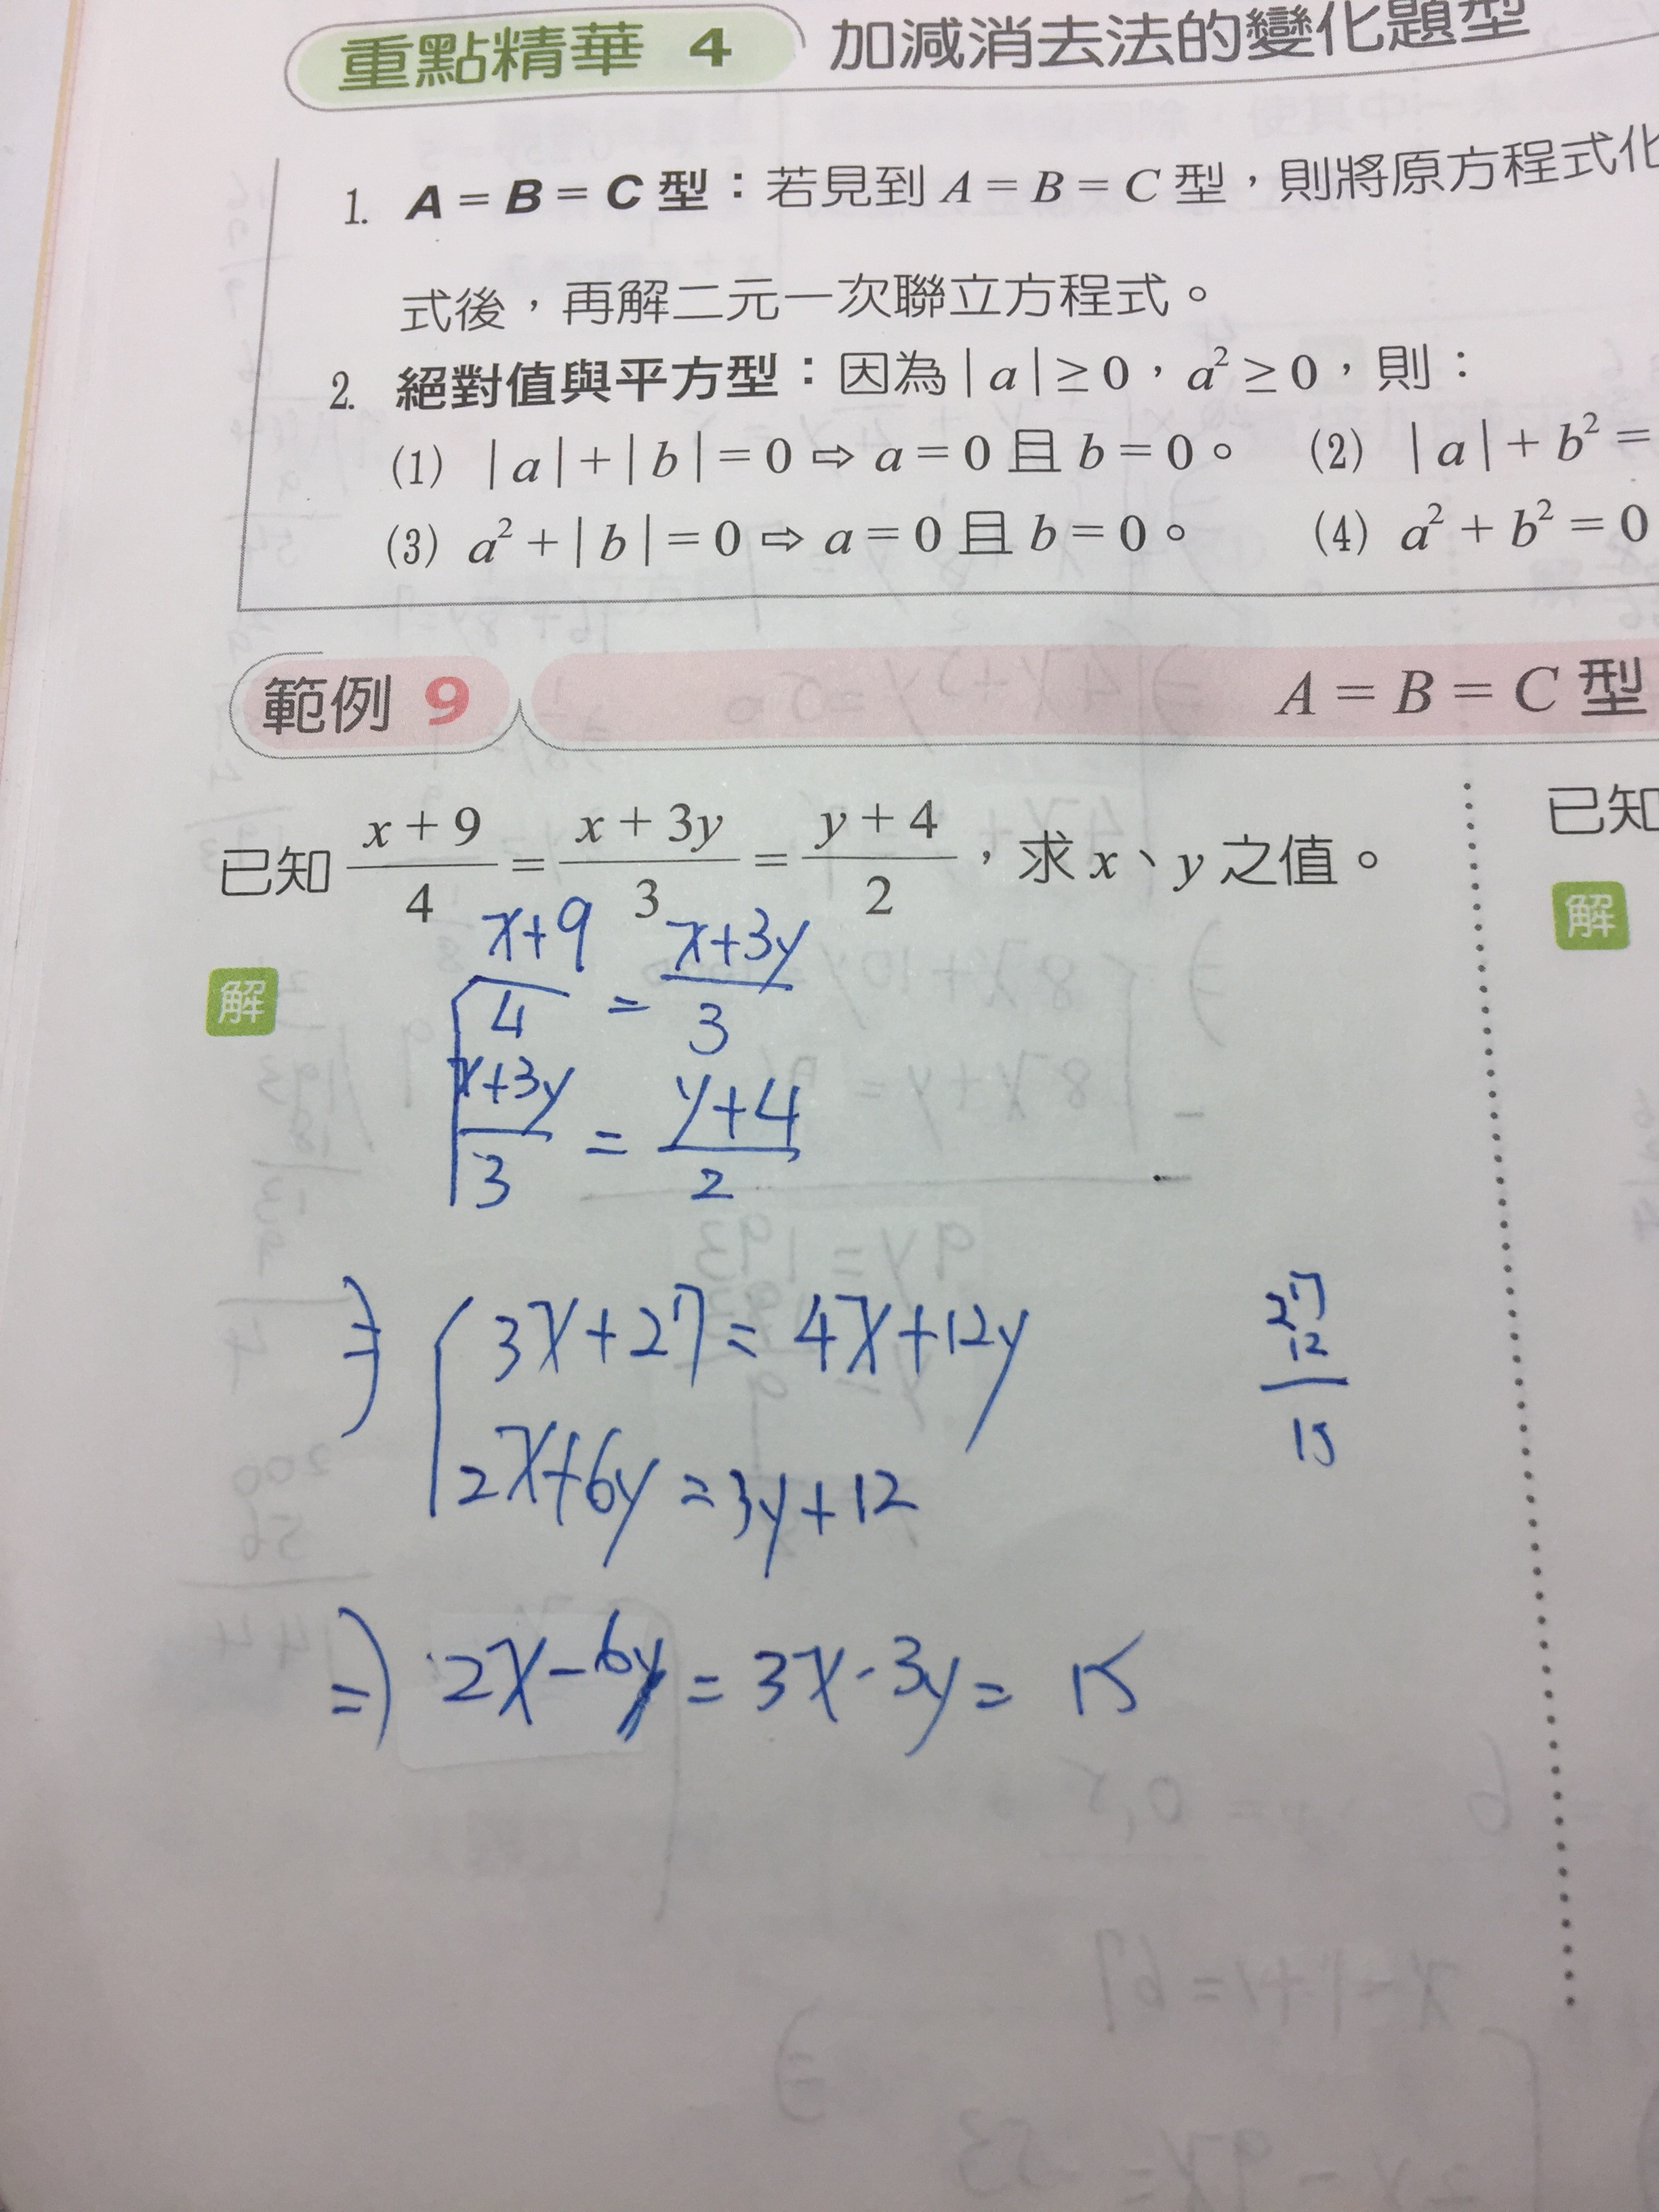 重點精華 4 加減消去法的變化題型
1. A = B = C 型：若見到 A = B = C 型，則將原方程式化
式後，再解二元一次聯立方程式。
2. 絕對值與平方型：因為 | a | ≥ 0，a² ≥ 0，則：
(1) | a | + | b | = 0 ⇨ a = 0 且 b = 0。 (2) | a | + b² =
(3) a² + | b | = 0 ⇨ a = 0 且 b = 0。 (4) a² + b² = 0
範例 9 A = B = C 型
已知 (x + 9)/4 = (x + 3y)/3 = (y + 4)/2，求 x、y 之值。
已知
解
解
(x+9)/4 = (x+3y)/3
(x+3y)/3 = (y+4)/2
⇒ 3x+27 = 4x+12y
2x+6y = 3y+12
27
12
15
⇒ 2x-6y = 3x-3y = 15